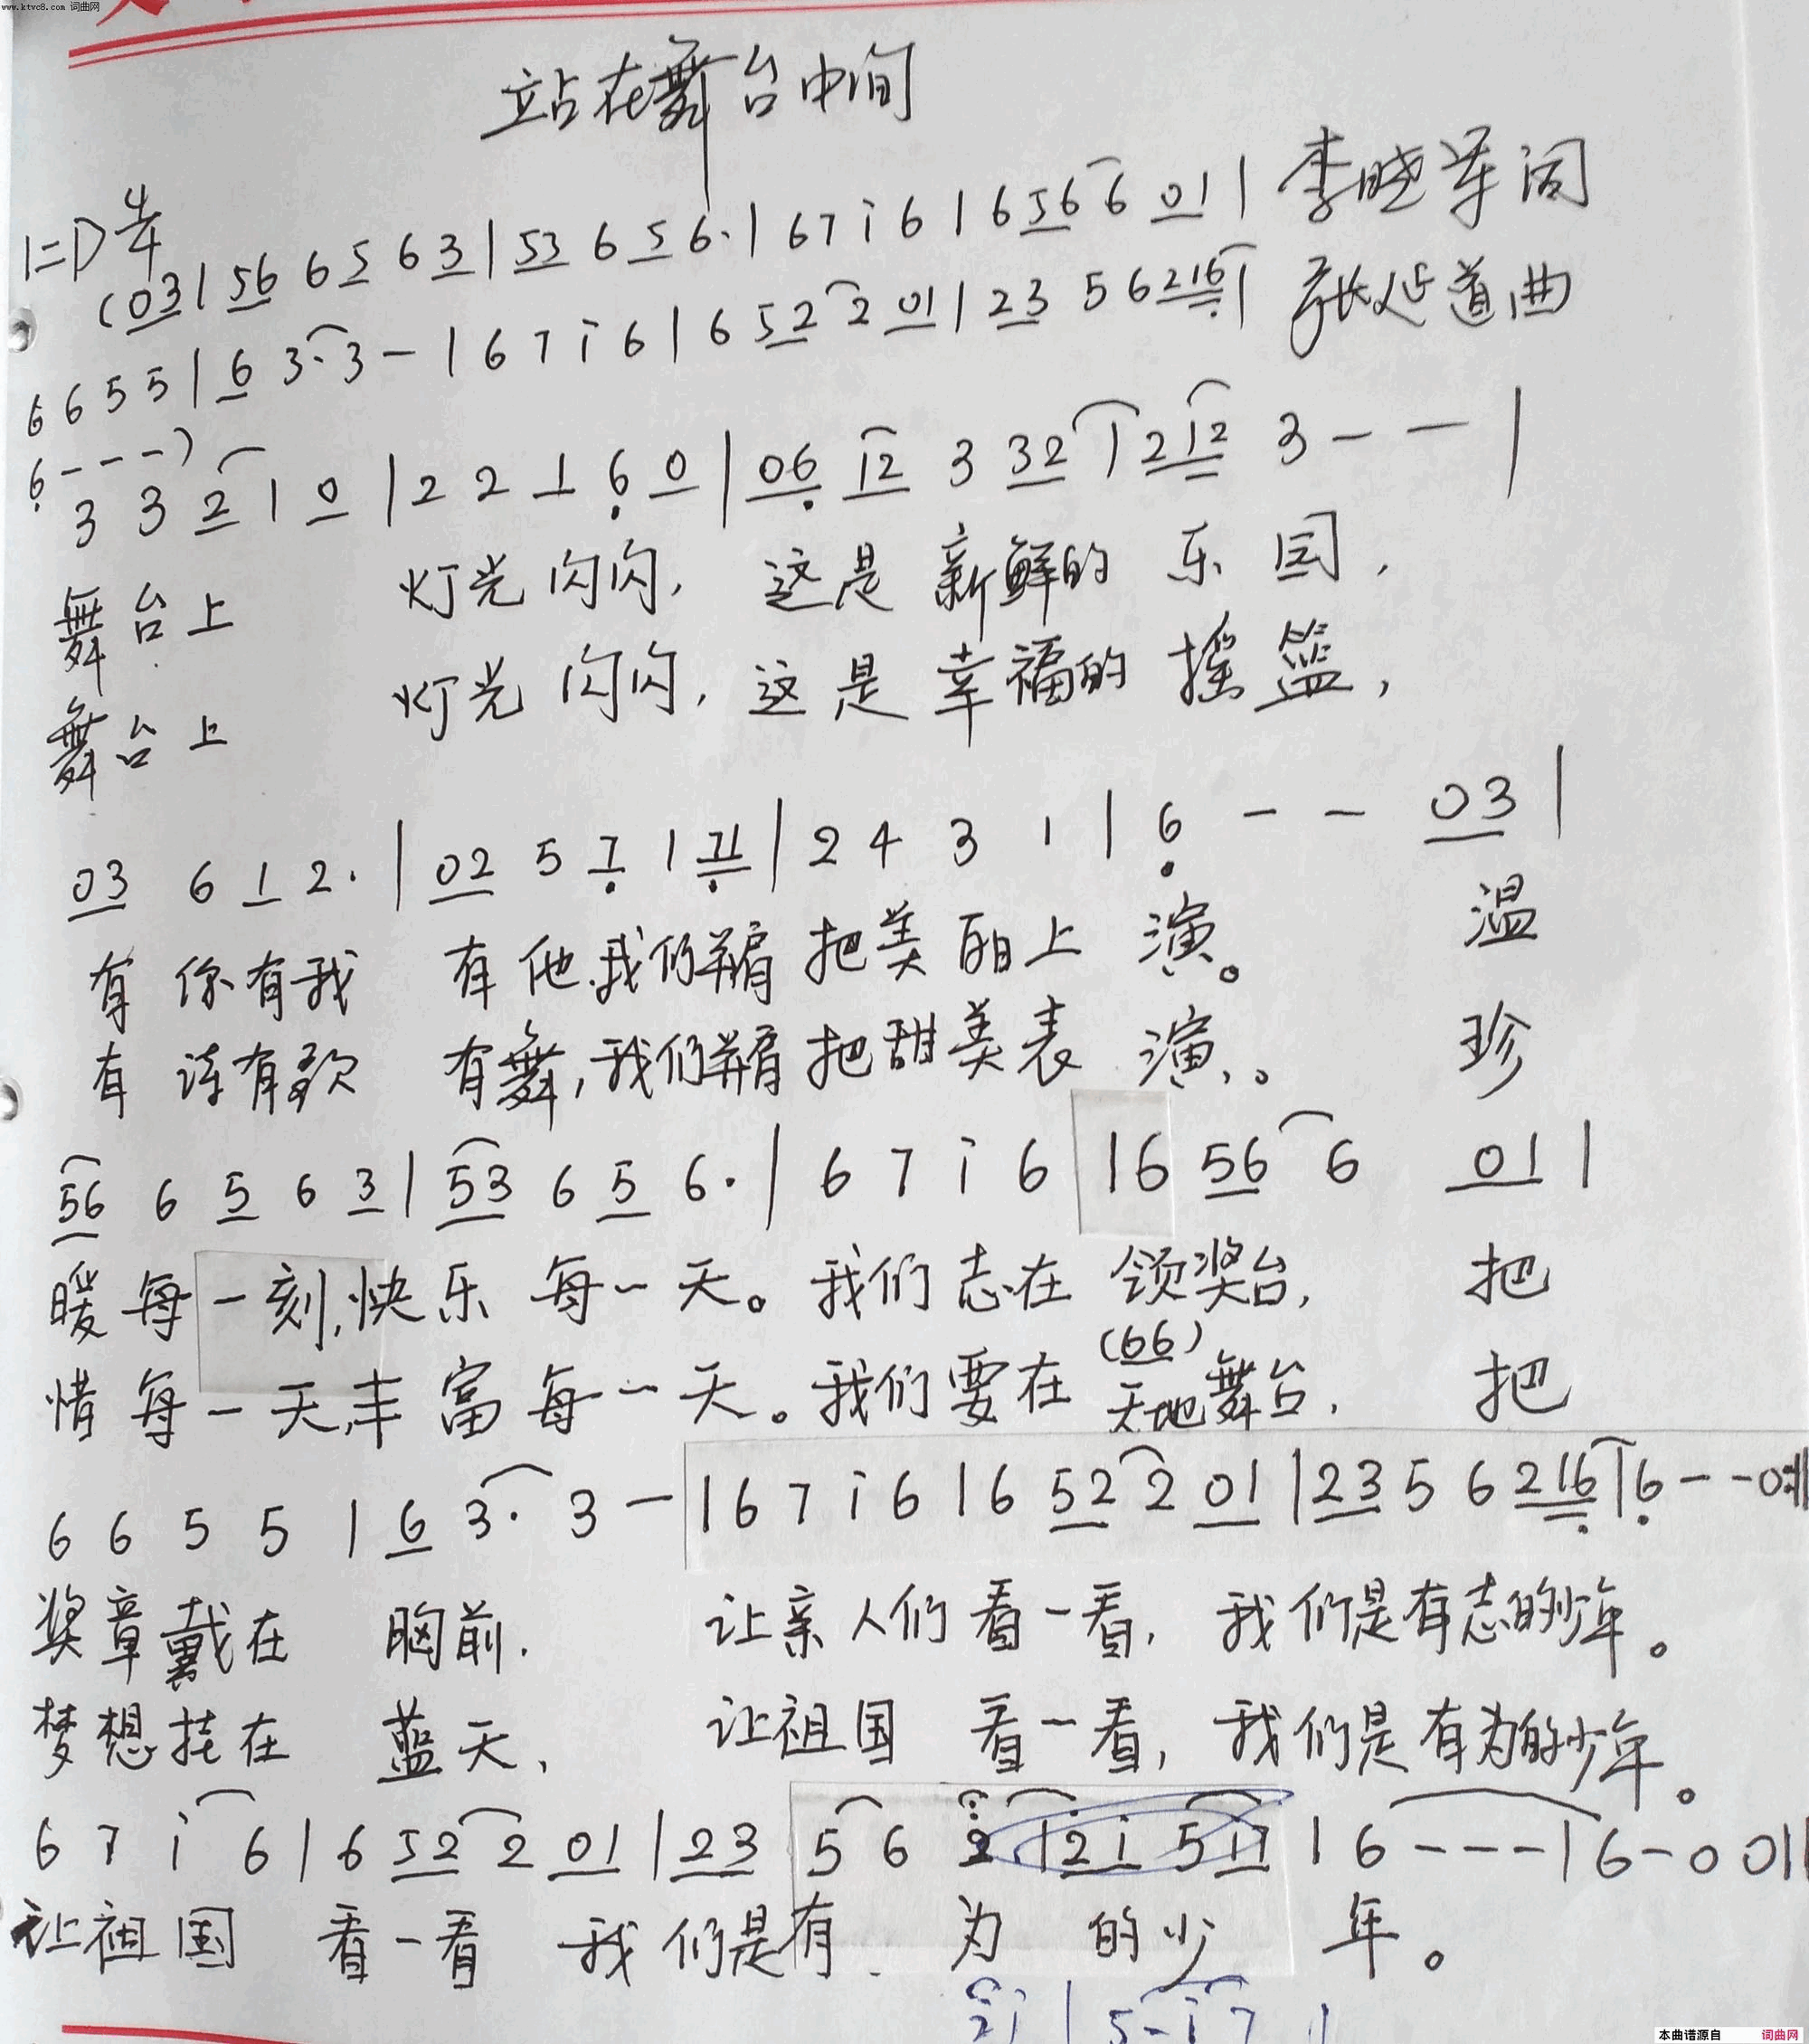 www.ktvc8.com 词曲网
站在舞台中间
1=D 4/4
(03|56 6 5 6 3|53 6 5 6·|6 7 i 6|6 56 6 01| 李晓军词
6 6 5 5|6 3· 3 -|6 7 i 6|6 52 2 01|23 5 6 216| 张延道曲
6 - - -)
3 3 2 1 0|2 2 1 6 0|06 12 3 32 1 2 12 3 - -|
舞台上 灯光闪闪, 这是新鲜的 乐园,
舞台上 灯光闪闪, 这是幸福的 摇篮,
03 6 1 2·|02 5 7 1 71|2 4 3 1|6 - - 03|
有你有我 有他,我们 把美丽上演。 温
有诗有歌 有舞,我们 把甜美表演。 珍
56 6 5 6 3|53 6 5 6·|6 7 i 6|6 56 6 01|
暖每一刻,快乐每一天。我们志在领奖台, 把
(66)
惜每一天,丰富每一天。我们要在天地舞台, 把
6 6 5 5|6 3· 3 -|6 7 i 6|6 52 2 01|23 5 6 216|6 - - 0:||
奖章戴在 胸前. 让亲人们看一看, 我们是有志的少年。
梦想挂在 蓝天, 让祖国 看一看, 我们是有为的少年。
6 7 i 6|6 52 2 01|23 5 6 2 |2i 5 17|6 - - -|6 - 0 0||
让祖国 看一看 我们是有 为 的少 年。
2i|5 - i 7|
本曲谱源自 词曲网